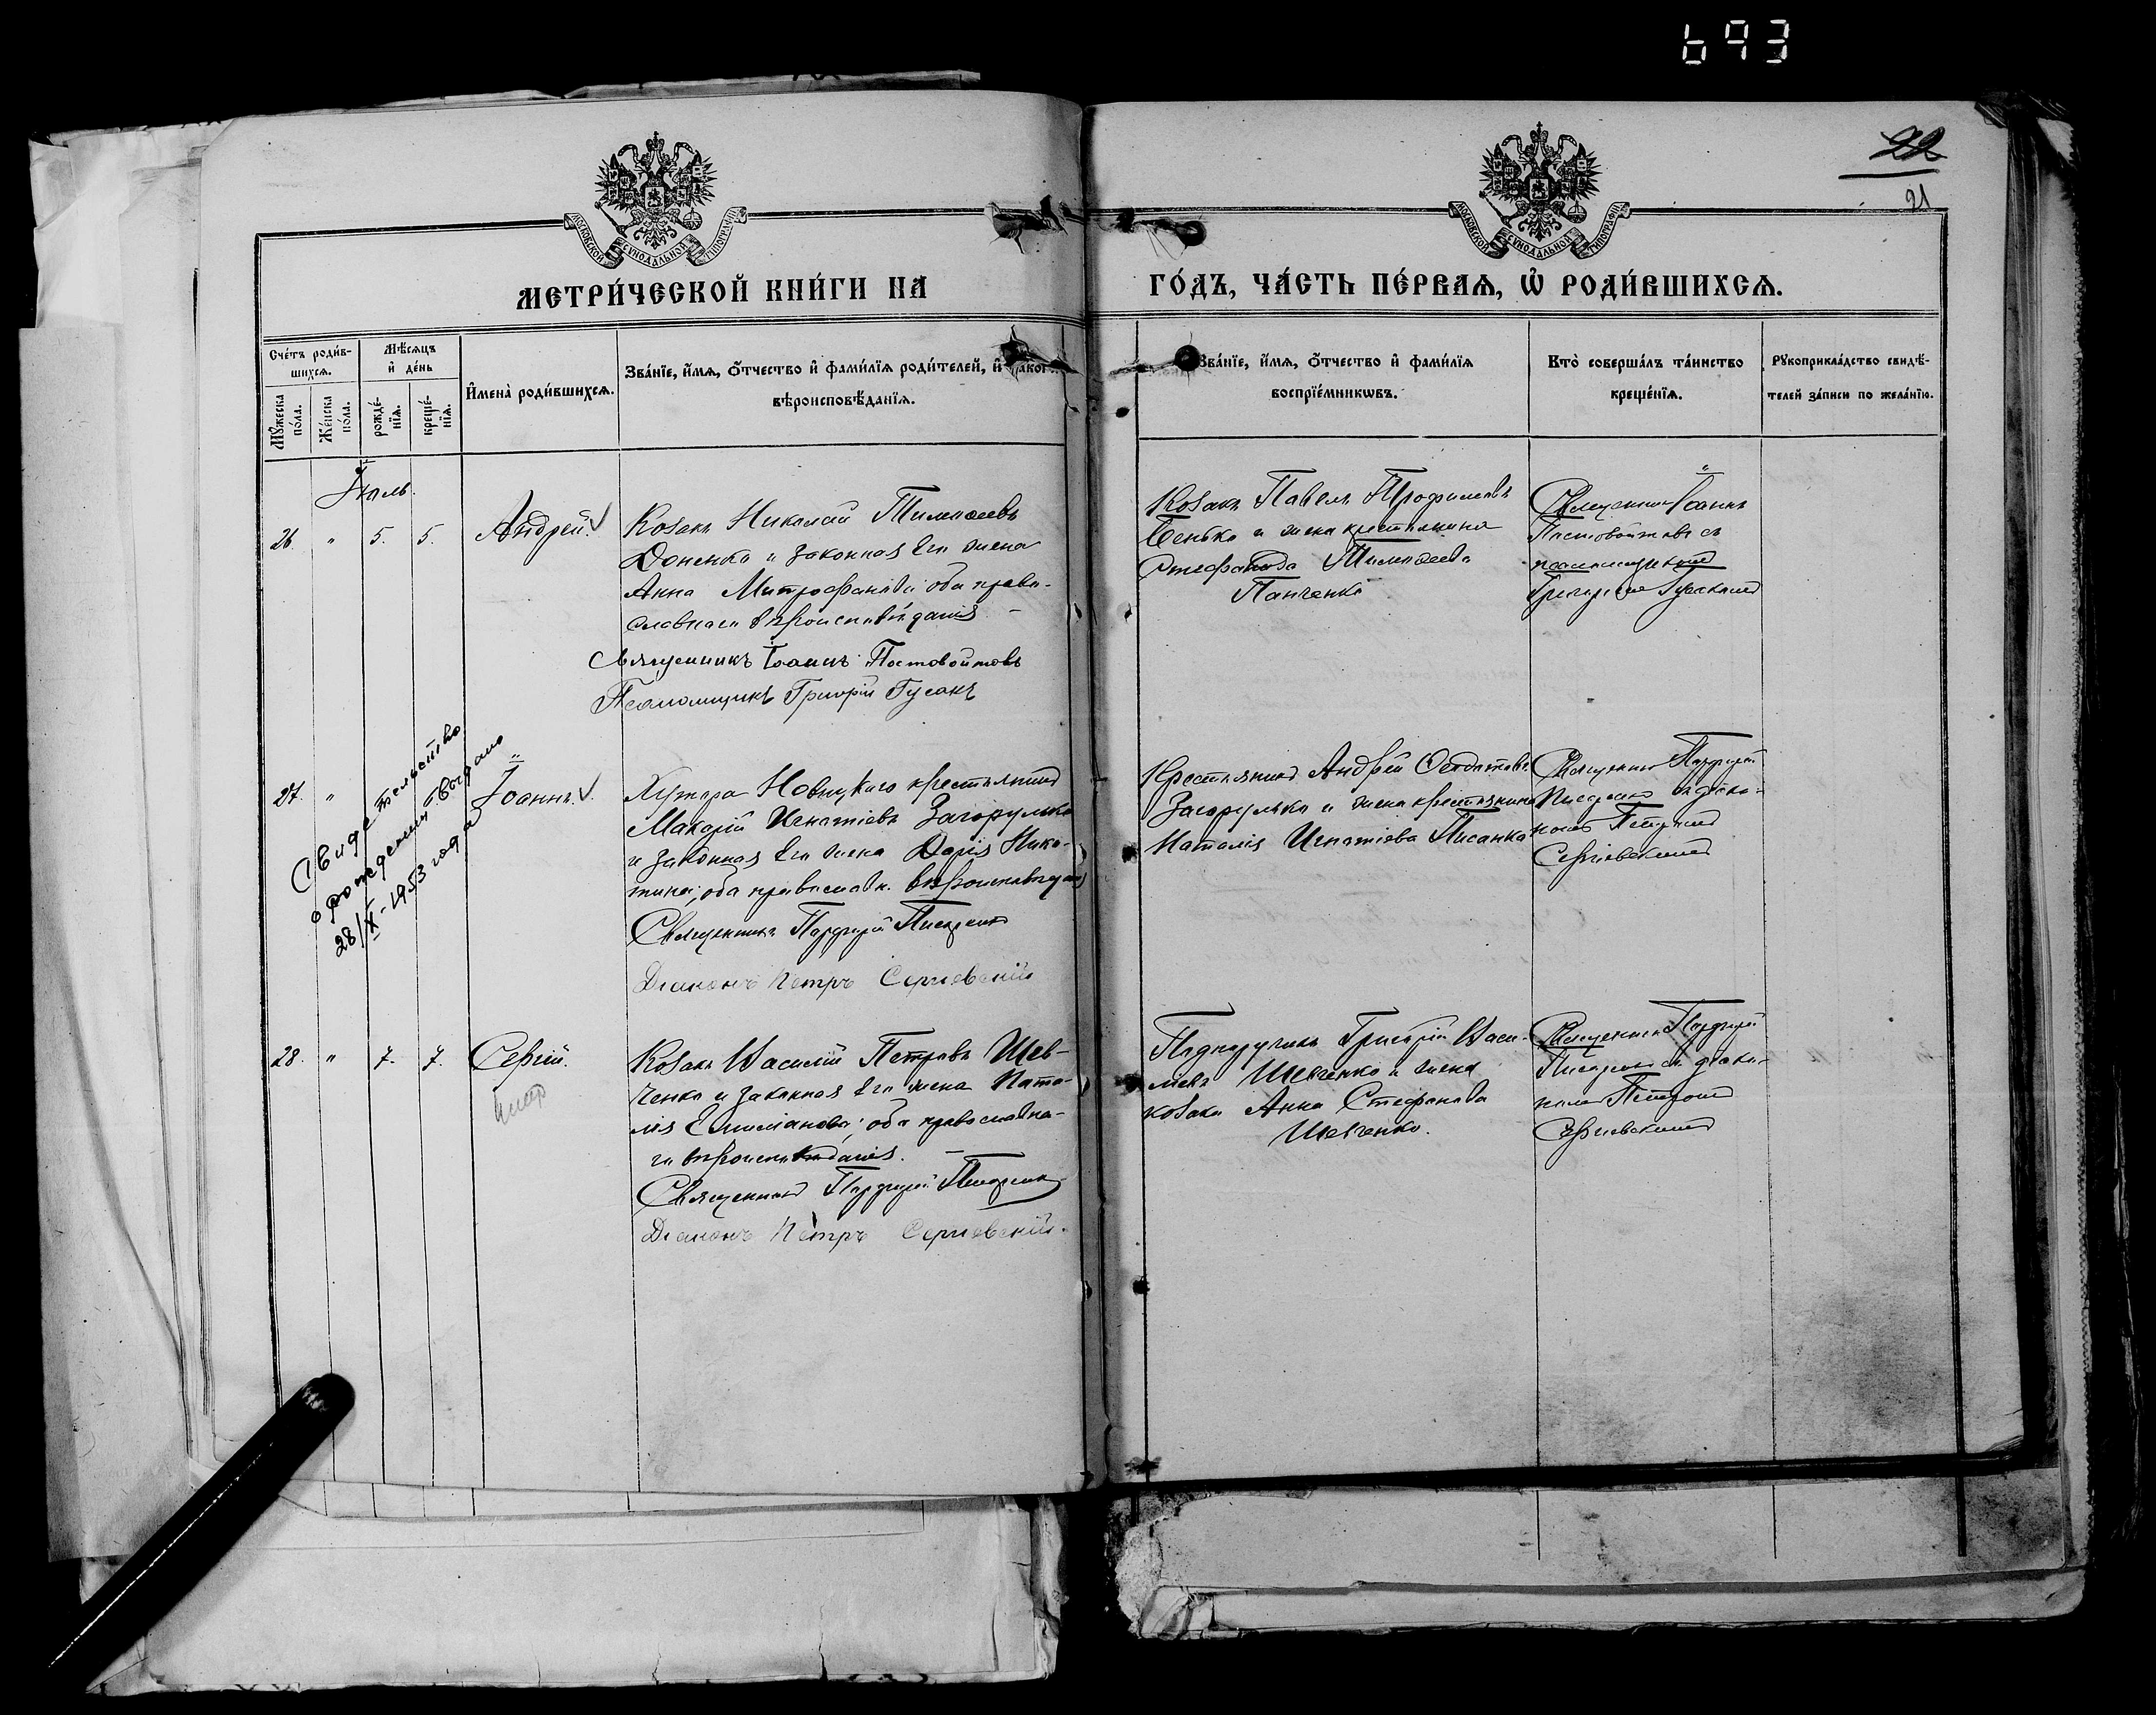 693
22
21
МОСКОВСКОЙ СУНОДАЛЬНОЙ ТИПОГРАФІИ
МОСКОВСКОЙ СУНОДАЛЬНОЙ ТИПОГРАФІИ
МЕТРИ́ЧЕСКОЙ КНИ́ГИ НА
ГО́ДЪ, ЧА́СТЬ ПЕ́РВАЯ, Ѡ҆ РОДИ́ВШИХСЯ.
Сче́тъ роди́в-
шихся.
Мꙋ́жеска
по́ла.
Же́нска
по́ла.
Мѣ́сяцъ
и҆ де́нь
рожде́-
нїя.
креще́-
нїя.
И҆мена̀ роди́вшихся.
Зва́нїе, и҆́мя, ѻ҆́тчество и҆ фами́лїя роди́телей, и҆
вѣроисповѣ́данїя.
Зва́нїе, и҆́мя, ѻ҆́тчество и҆ фами́лїя
воспрїе́мникѡвъ.
Кто̀ соверша́лъ та́инство
креще́нїя.
Рꙋкоприкла́дство свидѣ́-
телей за́писи по жела́нїю.
Іюль.
26. " 5. 5. Андрей.
Козакъ Николай Тимофеевъ
Доненко и законная его жена
Анна Митрофанова; оба право-
славнаго вѣроисповѣданія
Священникъ Іоаннъ Постовойтовъ
Псаломщикъ Григорій Гусакъ
Козакъ Павелъ Трофимовъ
Сенько и жена крестьянина
Стефанида Тимофеева
Панченко
Священникъ Іоаннъ
Постовойтовъ съ
псаломщикомъ
Григоріемъ Гусакомъ
Свидетельство
о рождении выдано
28/X-1953 года
27. " Іоаннъ.
Хутора Новицкаго крестьянинъ
Макарій Игнатіевъ Загорулько
и законная его жена Дарія Ники-
тина; оба православн. вѣроисповѣданія
Священникъ Порфирій Писаренко
Діаконъ Петръ Сергіевскій
Крестьянинъ Андрей
Загорулько и жена крестьянина
Наталія Игнатіева Писанка
Священникъ Порфирій
Писаренко съ діако-
номъ Петромъ
Сергіевскимъ
28. " 7. 7. Сергій.
умер
Козакъ Василій Петровъ Шев-
ченко и законная его жена Ната-
лія Емиліанова; оба православна-
го вѣроисповѣданія.
Священникъ Порфирій Писаренко
Діаконъ Петръ Сергіевскій.
Подпоручикъ Григорій Васи-
льевъ Шевченко и жена
козака Анна Стефанова
Шевченко.
Священникъ Порфирій
Писаренко съ діако-
номъ Петромъ
Сергіевскимъ